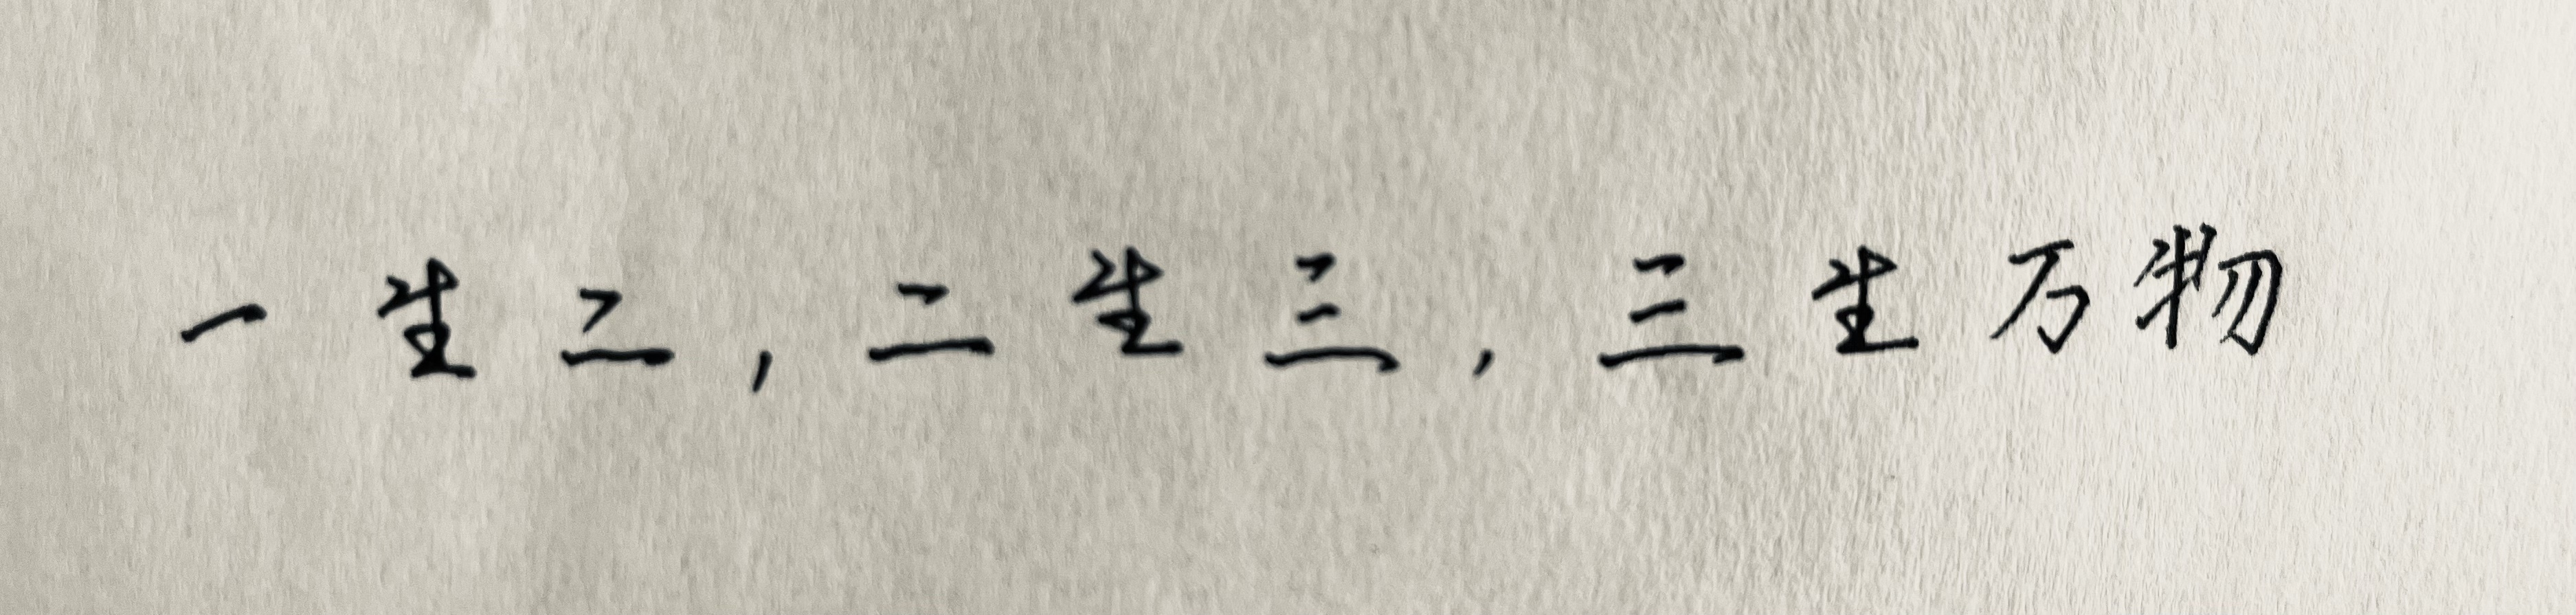 一生二，二生三，三生万物